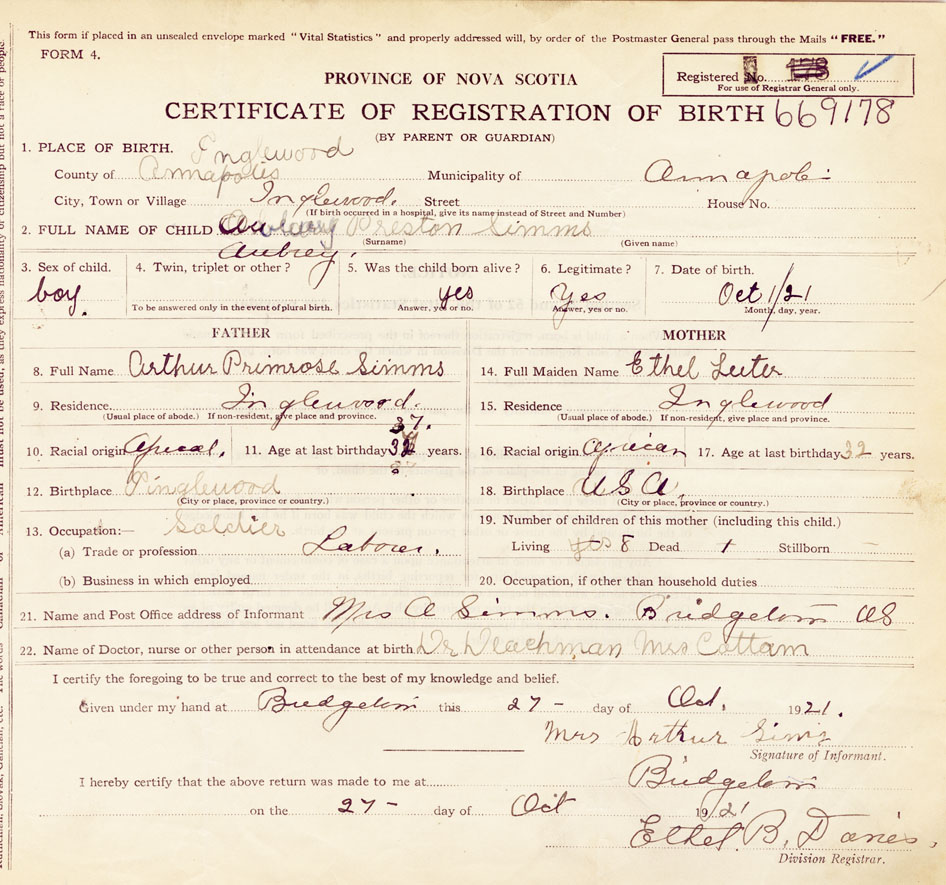 This form if placed in an unsealed envelope marked "Vital Statistics" and properly addressed will, by order of the Postmaster General pass through the Mails "FREE."
FORM 4.
PROVINCE OF NOVA SCOTIA
Registered No. 178
For use of Registrar General only.
CERTIFICATE OF REGISTRATION OF BIRTH 669178
(BY PARENT OR GUARDIAN)
1. PLACE OF BIRTH. Inglewood
County of Annapolis Municipality of
City, Town or Village Inglewood. Street House No.
(If birth occurred in a hospital, give its name instead of Street and Number)
2. FULL NAME OF CHILD Preston Simms
(Surname) (Given name)
Aubrey.
3. Sex of child. 4. Twin, triplet or other? 5. Was the child born alive? 6. Legitimate? 7. Date of birth.
boy. yes Yes Oct 1/21
To be answered only in the event of plural birth. Answer, yes or no. Answer, yes or no. Month, day, year.
FATHER MOTHER
8. Full Name Arthur Primrose Simms 14. Full Maiden Name Ethel
9. Residence Inglewood. 15. Residence Inglewood
(Usual place of abode.) If non-resident, give place and province. (Usual place of abode.) If non-resident, give place and province.
37.
10. Racial origin 11. Age at last birthday years. 16. Racial origin African 17. Age at last birthday 32 years.
12. Birthplace Inglewood 18. Birthplace U S A.
(City or place, province or country.) (City or place, province or country.)
13. Occupation:— Soldier 19. Number of children of this mother (including this child.)
(a) Trade or profession Laborer. Living yes 8 Dead 1 Stillborn –
(b) Business in which employed 20. Occupation, if other than household duties
21. Name and Post Office address of Informant Mrs A Simms.
22. Name of Doctor, nurse or other person in attendance at birth Dr Deachman Mrs Cottam
I certify the foregoing to be true and correct to the best of my knowledge and belief.
Given under my hand at this 27 – day of Oct. 1921.
Mrs Arthur Sims
Signature of Informant.
I hereby certify that the above return was made to me at
on the 27 – day of Oct 1921
Ethel. B. Davies.
Division Registrar.